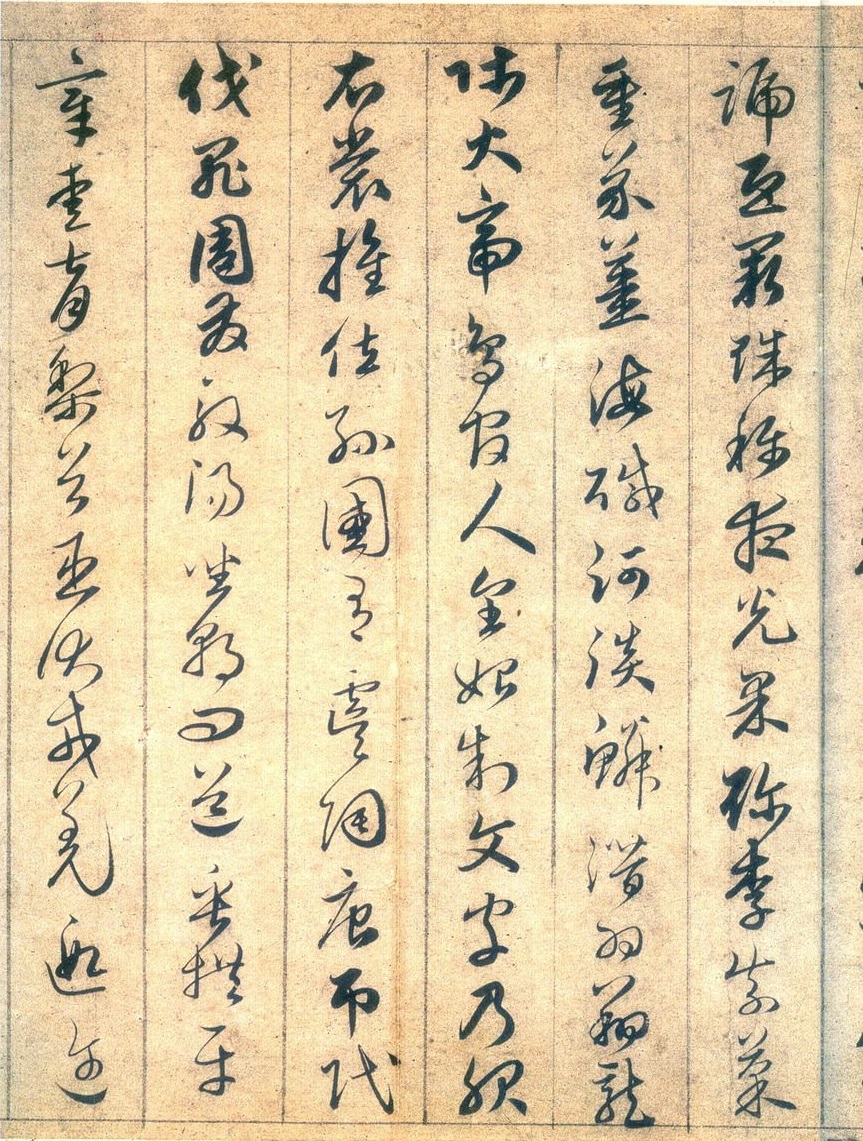 號巨闕珠稱夜光果珍李柰菜
重芥薑海鹹河淡鱗潛羽翔龍
師火帝鳥官人皇始制文字乃服
衣裳推位孫國有虞陶唐弔民
伐罪周發殷湯坐朝問道垂拱平
章愛育黎首臣伏戎羌遐邇